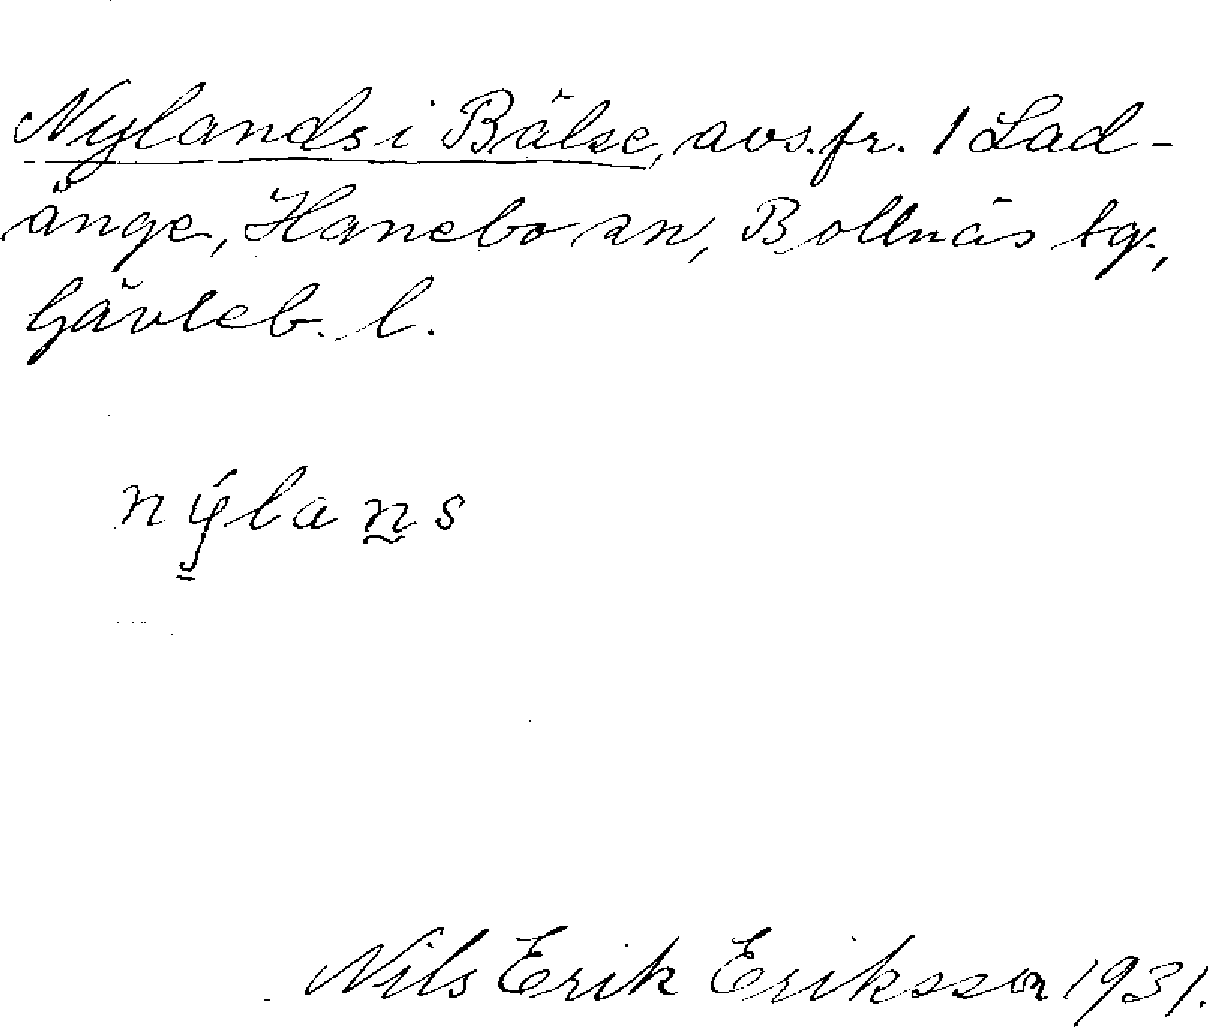 Nylands i Bälse, avs. fr. 1 Lad-
änge, Hanebo sn, Bollnäs tg.,
Gävleb. l.
nýlans
Nils Erik Eriksson 1931.